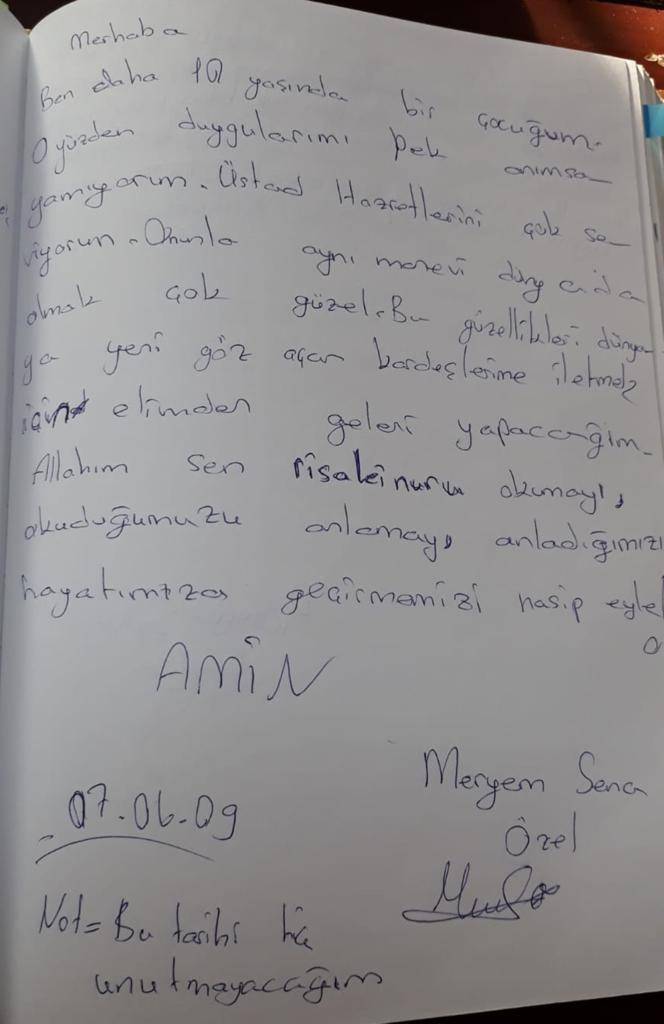 Merhaba
Ben daha 10 yaşında bir çocuğum.
O yüzden duygularımı pek anımsa
yamıyorum. Üstad Hazretlerini çok se
viyorum. Onunla aynı manevi duyguda
olmak çok güzel. Bu güzellikleri dünya
ya yeni göz açan kardeşlerime iletmek
için elimden geleni yapacağım.
Allahım sen risaleinuru okumayı,
okuduğumuzu anlamayı, anladığımızı
hayatımıza geçirmemizi nasip eyle
AMİN
07.06.09
Meryem Sena
Özel
Not= Bu tarihi hiç
unutmayacağım